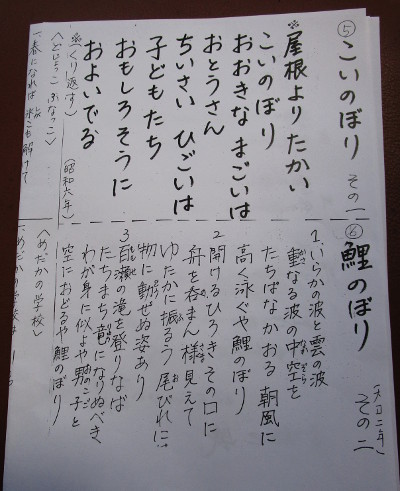 ⑤ こいのぼり その一
※屋根より たかい
こいのぼり
おおきな まごいは
おとうさん
ちいさい ひごいは
子どもたち
おもしろそうに
およいでる
※(くり返す) (昭和六年)
〈どじょっこ ふなっこ〉
一春になれば 氷こも解けて
⑥ 鯉のぼり その二
1.いらかの波と雲の波
重なる波の中空を
たちばなかおる 朝風に
高く泳ぐや鯉のぼり
2 開けるひろき その口に
舟を呑まん 様見えて
ゆたかに振るう 尾びれには
物に動ぜぬ姿あり
3 百瀬の滝を登りなば
たちまち龍になりぬべき
わが身に似よや男の子と
空におどるや鯉のぼり
〈めだかの学校〉